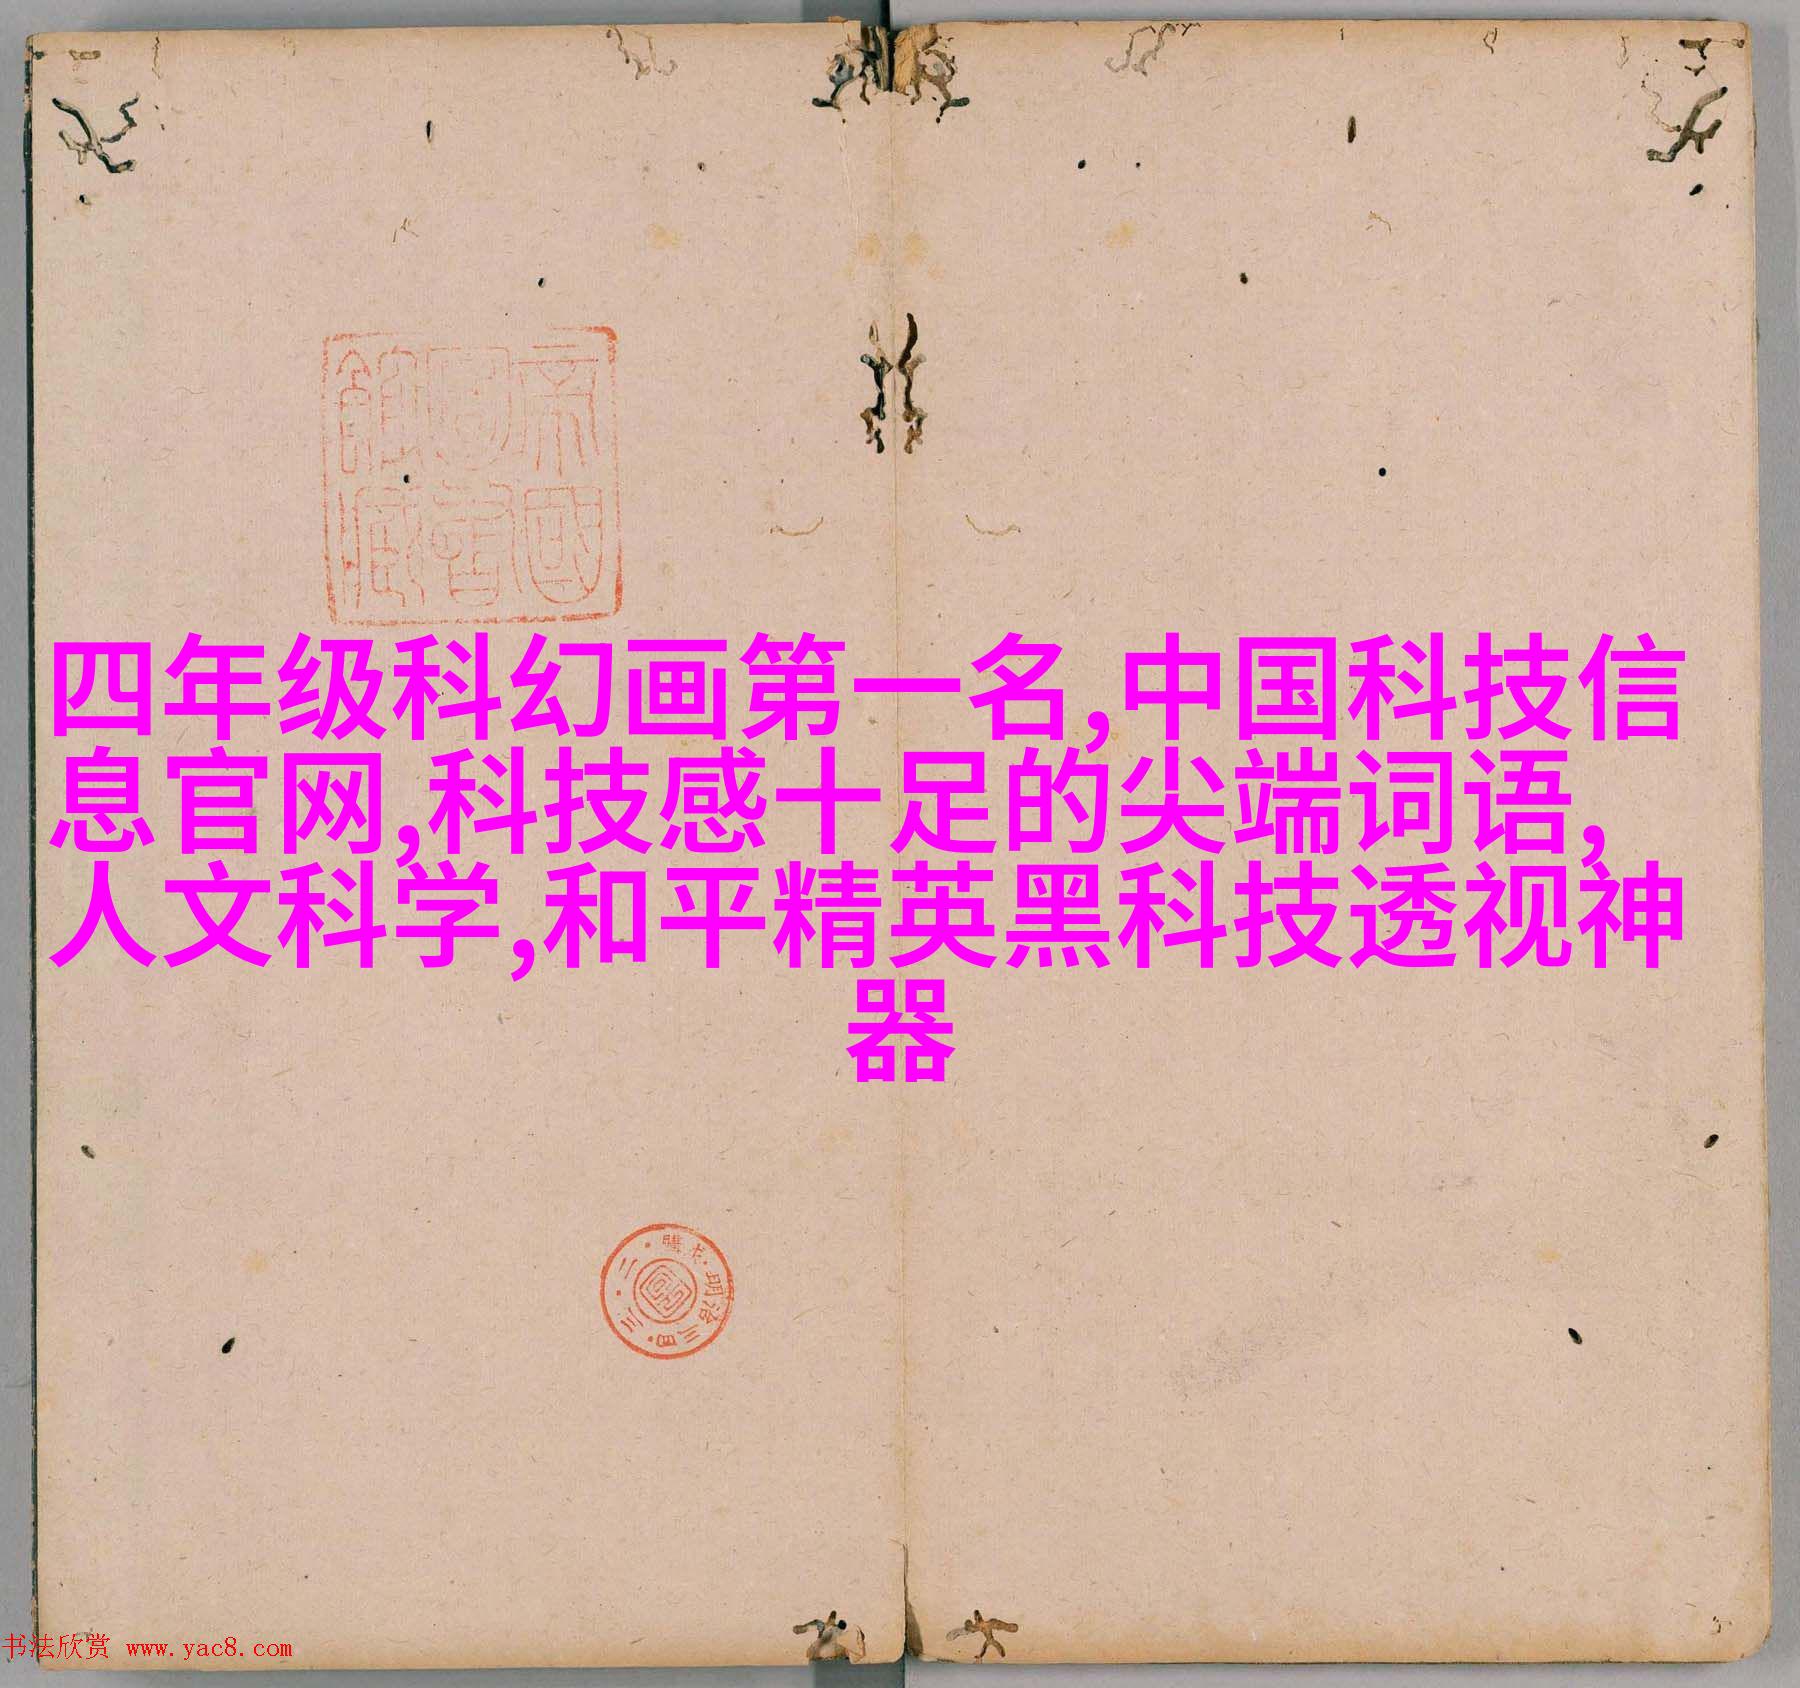 帝國
圖書
館藏
四年级科幻画第一名,中国科技信
息官网,科技感十足的尖端词语,
人文科学,和平精英黑科技透视神
器
購求·明治三四·三·二·
书法欣赏 www.yac8.com